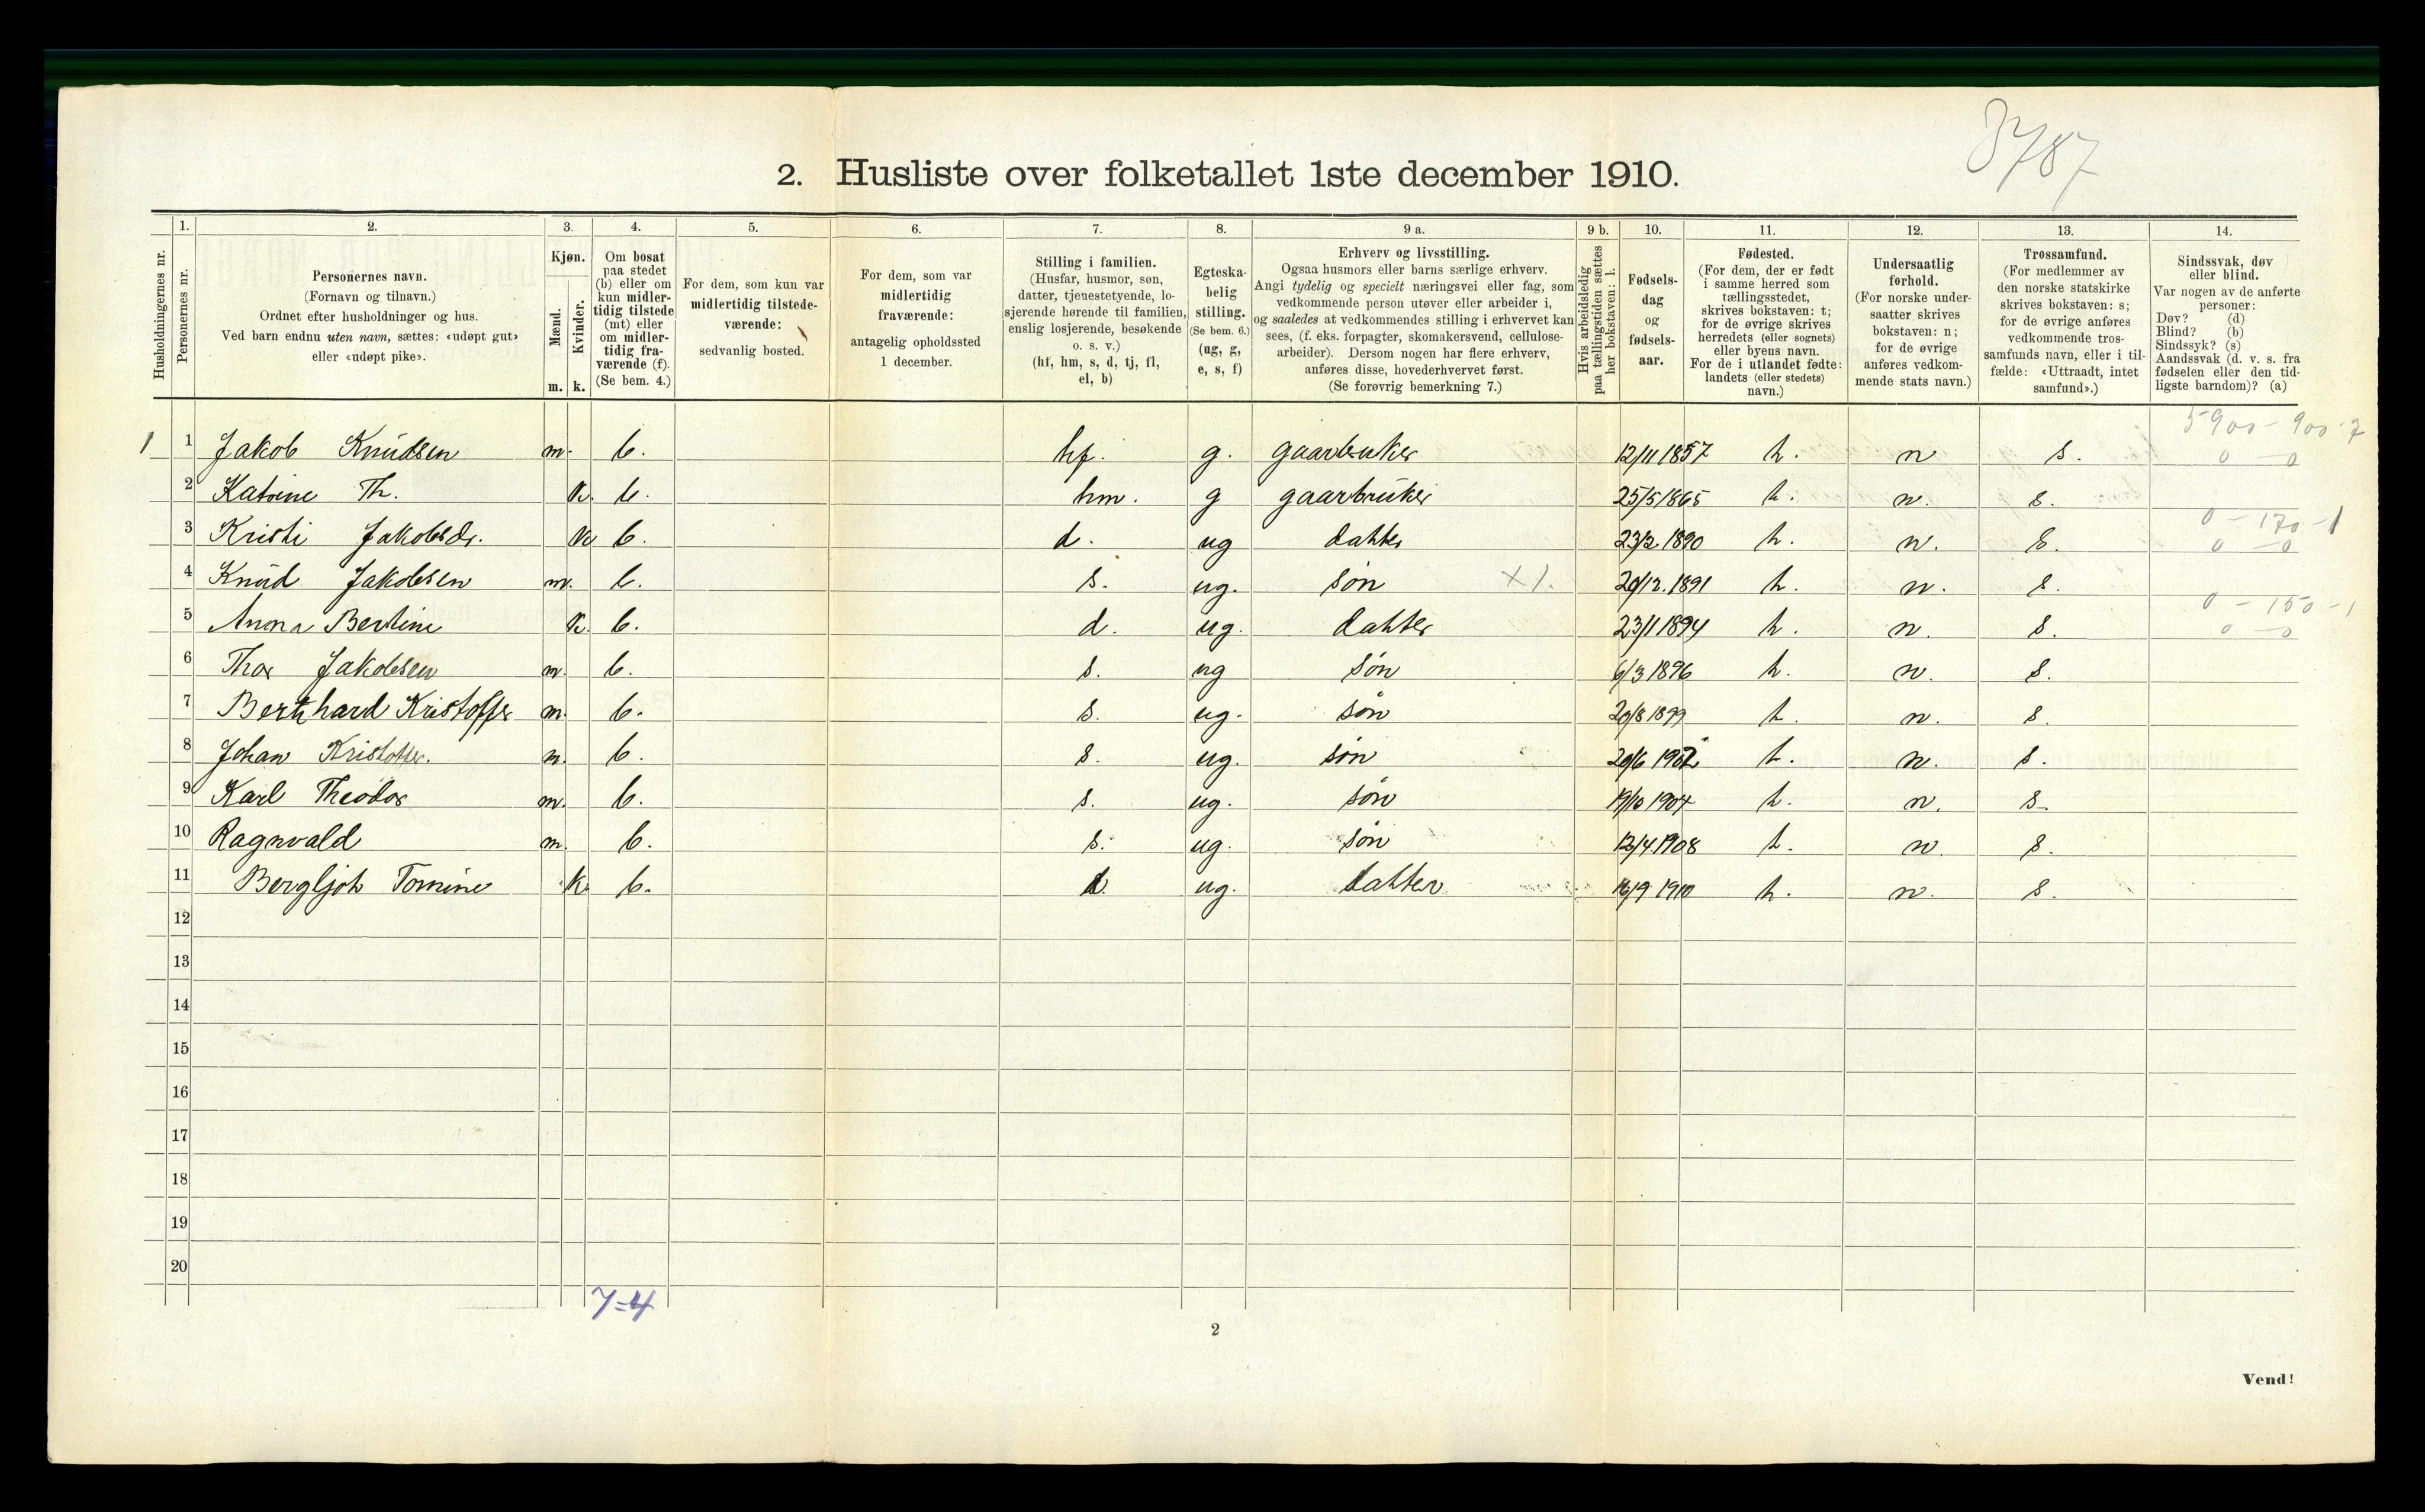 3787
2. Husliste over folketallet 1ste december 1910.
1. 2. 3. 4. 5. 6. 7. 8. 9 a. 9 b. 10. 11. 12. 13. 14.
Husholdningernes nr.
Personernes nr.
Personernes navn.
(Fornavn og tilnavn.)
Ordnet efter husholdninger og hus.
Ved barn endnu uten navn, sættes: «udøpt gut»
eller «udøpt pike».
Kjøn.
Mænd.
Kvinder.
m. k.
Om bosat
paa stedet
(b) eller om
kun midler-
tidig tilstede
(mt) eller
om midler-
tidig fra-
værende (f).
(Se bem. 4.)
For dem, som kun var
midlertidig tilstede-
værende:
sedvanlig bosted.
For dem, som var
midlertidig
fraværende:
antagelig opholdssted
1 december.
Stilling i familien.
(Husfar, husmor, søn,
datter, tjenestetyende, lo-
sjerende hørende til familien,
enslig losjerende, besøkende
o. s. v.)
(hf, hm, s, d, tj, fl,
el, b)
Egteska-
belig
stilling.
(Se bem. 6.)
(ug, g,
e, s, f)
Erhverv og livsstilling.
Ogsaa husmors eller barns særlige erhverv.
Angi tydelig og specielt næringsvei eller fag, som
vedkommende person utøver eller arbeider i,
og saaledes at vedkommendes stilling i erhvervet kan
sees, (f. eks. forpagter, skomakersvend, cellulose-
arbeider). Dersom nogen har flere erhverv,
anføres disse, hovederhvervet først.
(Se forøvrig bemerkning 7.)
Hvis arbeidsledig
paa tællingstiden sættes
her bokstaven: l.
Fødsels-
dag
og
fødsels-
aar.
Fødested.
(For dem, der er født
i samme herred som
tællingsstedet,
skrives bokstaven: t;
for de øvrige skrives
herredets (eller sognets)
eller byens navn.
For de i utlandet fødte:
landets (eller stedets)
navn.)
Undersaatlig
forhold.
(For norske under-
saatter skrives
bokstaven: n;
for de øvrige
anføres vedkom-
mende stats navn.)
Trossamfund.
(For medlemmer av
den norske statskirke
skrives bokstaven: s;
for de øvrige anføres
vedkommende tros-
samfunds navn, eller i til-
fælde: «Uttraadt, intet
samfund».)
Sindssvak, døv
eller blind.
Var nogen av de anførte
personer:
Døv? (d)
Blind? (b)
Sindssyk? (s)
Aandssvak (d. v. s. fra
fødselen eller den tid-
ligste barndom)? (a)
5900 - 900-7
1 1 Jakob Knudsen m. b. hf. g. gaarbruker 12/11 1857 t. n s. 0 - 0
2 Katrine Th. k. b. hm. g gaarbruker 25/5 1865 t. n. s.
0 - 170 - 1
3 Kristi Jakobsdr. k b. d. ug datter 23/2 1890 t. n. s. 0 - 0
4 Knud Jakobsen m. b. s. ug. søn X 1. 20/12. 1891 t. n. s.
0 - 150 - 1
5 Anna Bertine k. b. d. ug. datter 23/1 1894 t. n. s. 0 - 0
6 Thor Jakobsen m. b. s. ug søn 6/3 1896 t. n. s.
7 Bernhard Kristoffer m. b. s. ug. søn 20/8 1899 t. n. s.
8 Johan Kristoffer. m. b. s. ug. søn 20/6 1902 t. n. s.
9 Karl Theodor m. b. s. ug. søn 19/10 1904 t. n. s.
10 Ragnvald m. b. s. ug. søn 12/4 1908 t. n. s.
11 Bergljot Tomine k. b. d. ug. datter 16/9 1910 t. n. s.
12
13
14
15
16
17
18
19
20
7-4
2
Vend!